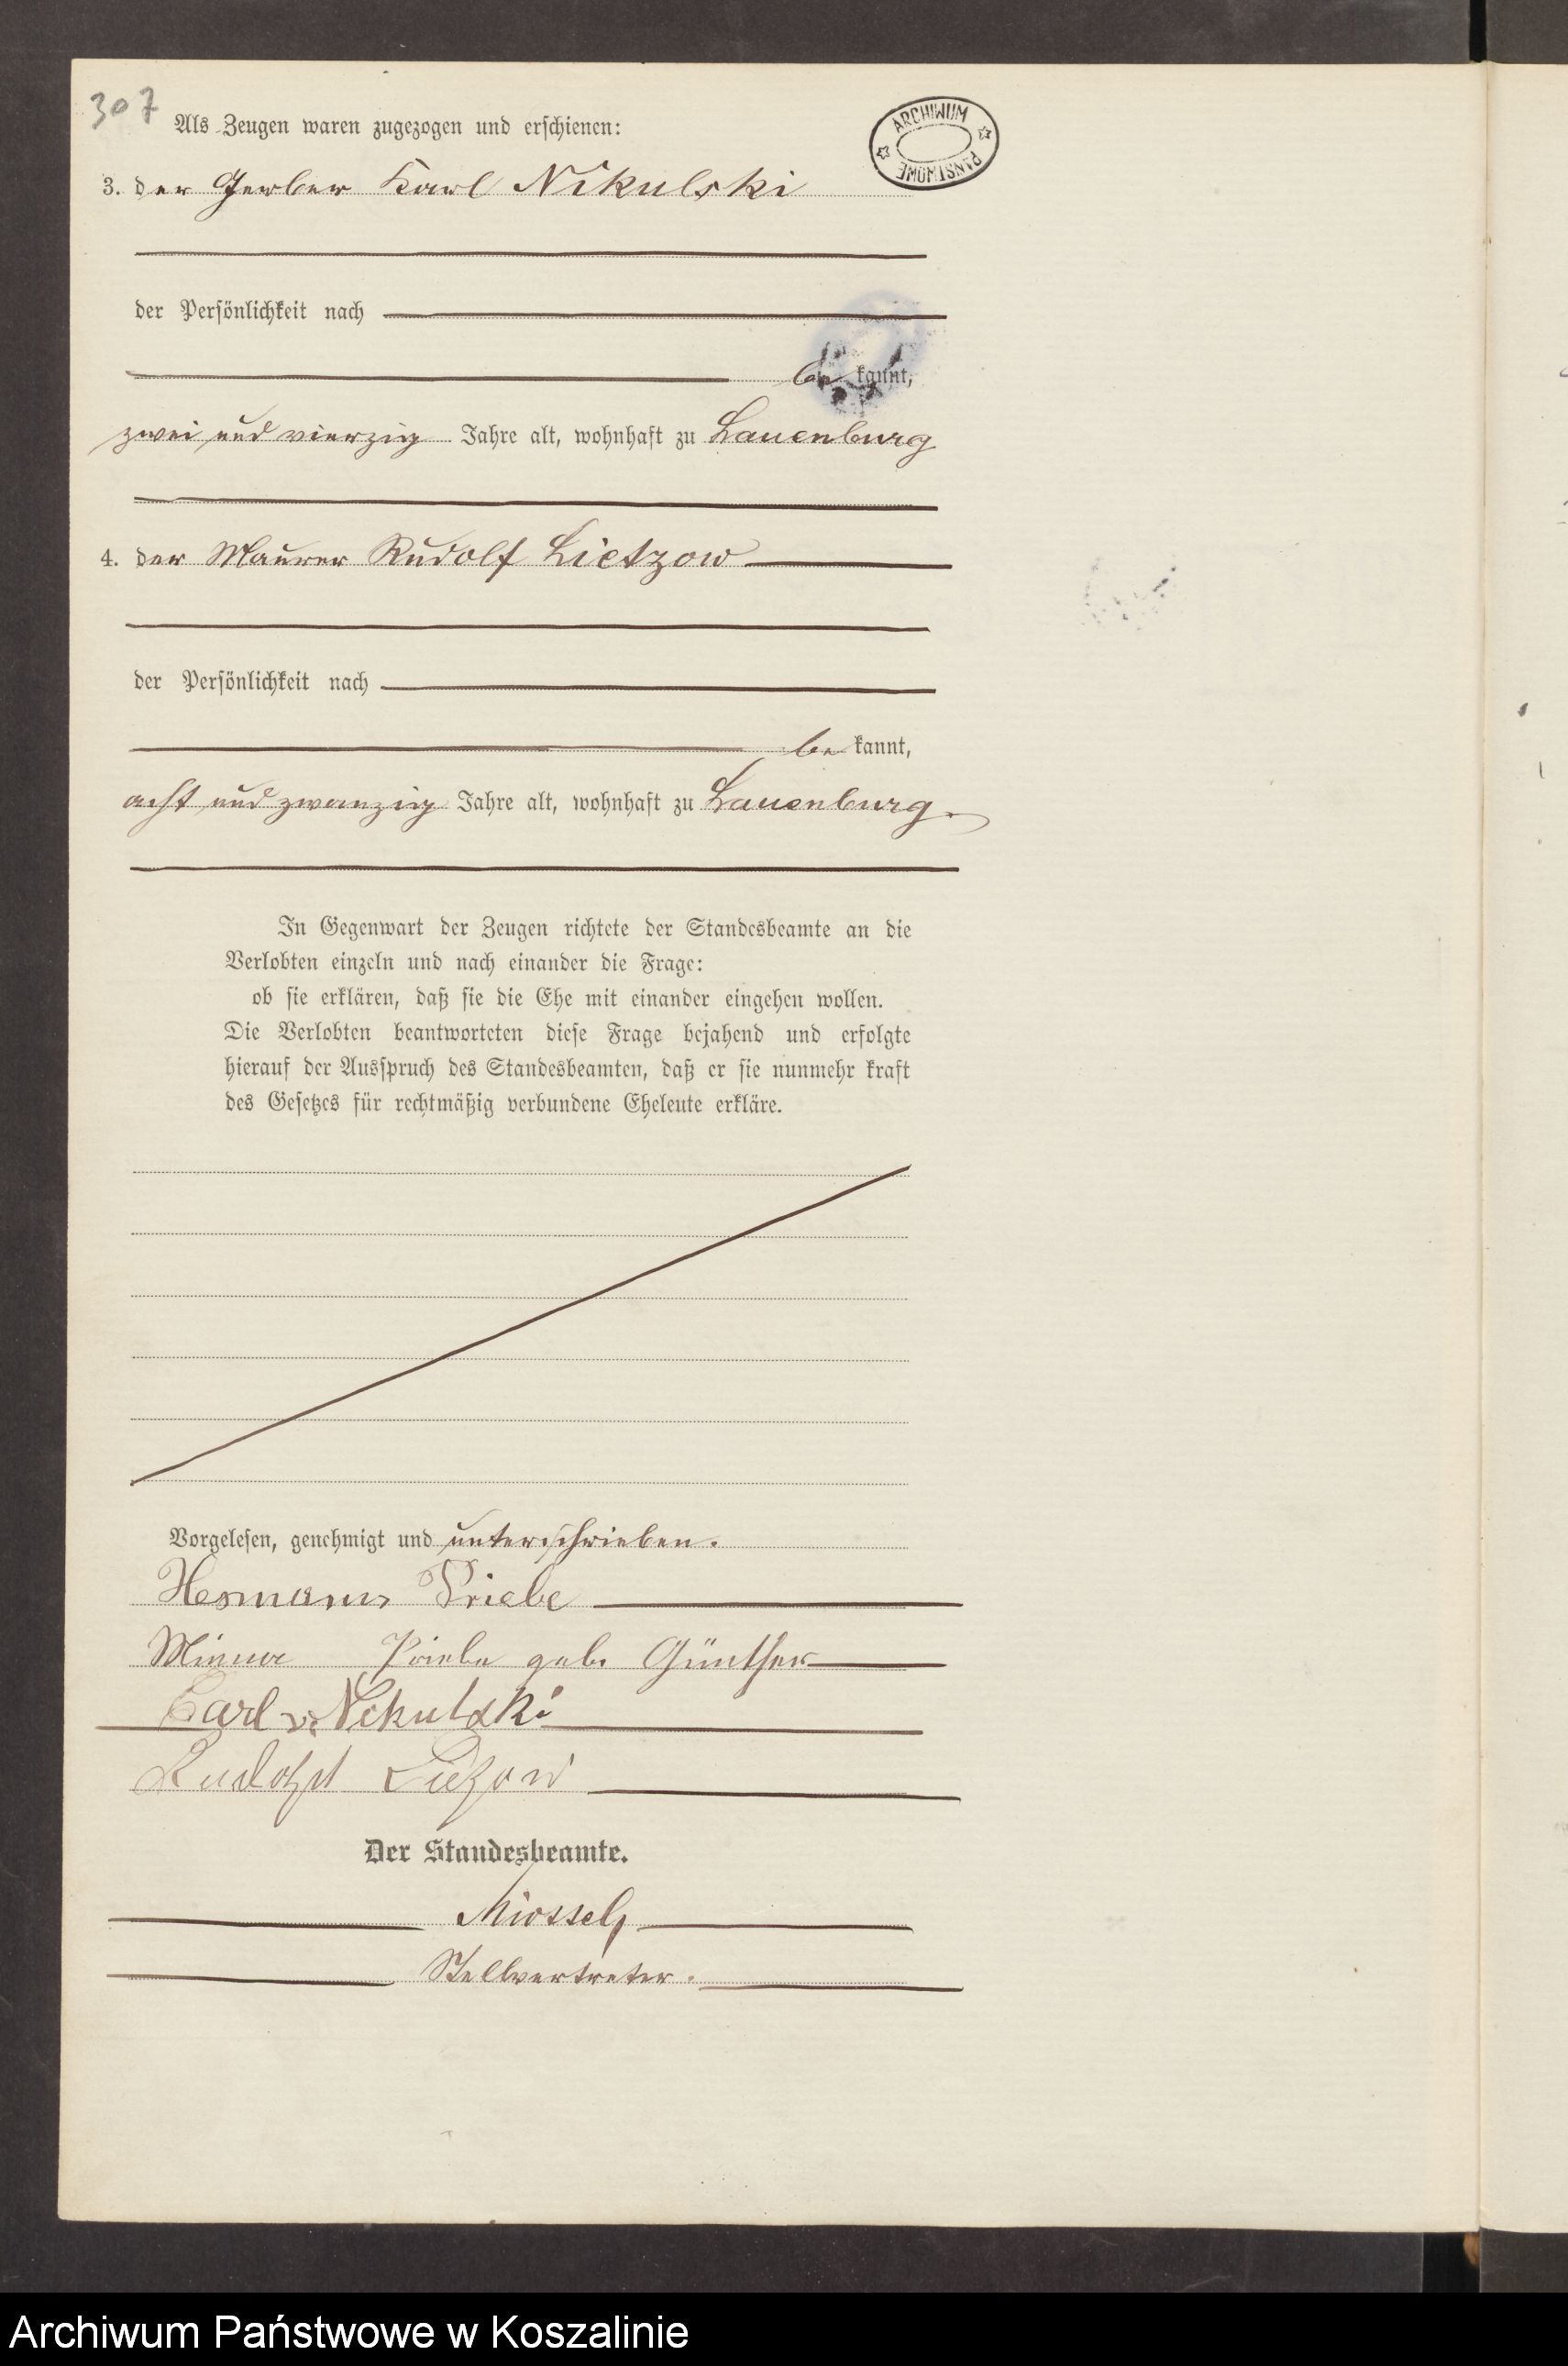 307
Als Zeugen waren zugezogen und erschienen:
ARCHIWUM PAŃSTWOWE
3. der Gerber Karl Nikulski
der Persönlichkeit nach
be kannt,
zwei und vierzig Jahre alt, wohnhaft zu Lauenburg
4. der Maurer Rudolf Lietzow
der Persönlichkeit nach
be kannt,
acht und zwanzig Jahre alt, wohnhaft zu Lauenburg.
In Gegenwart der Zeugen richtete der Standesbeamte an die
Verlobten einzeln und nach einander die Frage:
ob sie erklären, daß sie die Ehe mit einander eingehen wollen.
Die Verlobten beantworteten diese Frage bejahend und erfolgte
hierauf der Ausspruch des Standesbeamten, daß er sie nunmehr kraft
des Gesetzes für rechtmäßig verbundene Eheleute erkläre.
Vorgelesen, genehmigt und unterschrieben.
Hermann Priebe
Minna Priebe geb. Günther
Carl v. Nikulski
Rudolf Lietzow
Der Standesbeamte.
Stellvertreter.
Archiwum Państwowe w Koszalinie